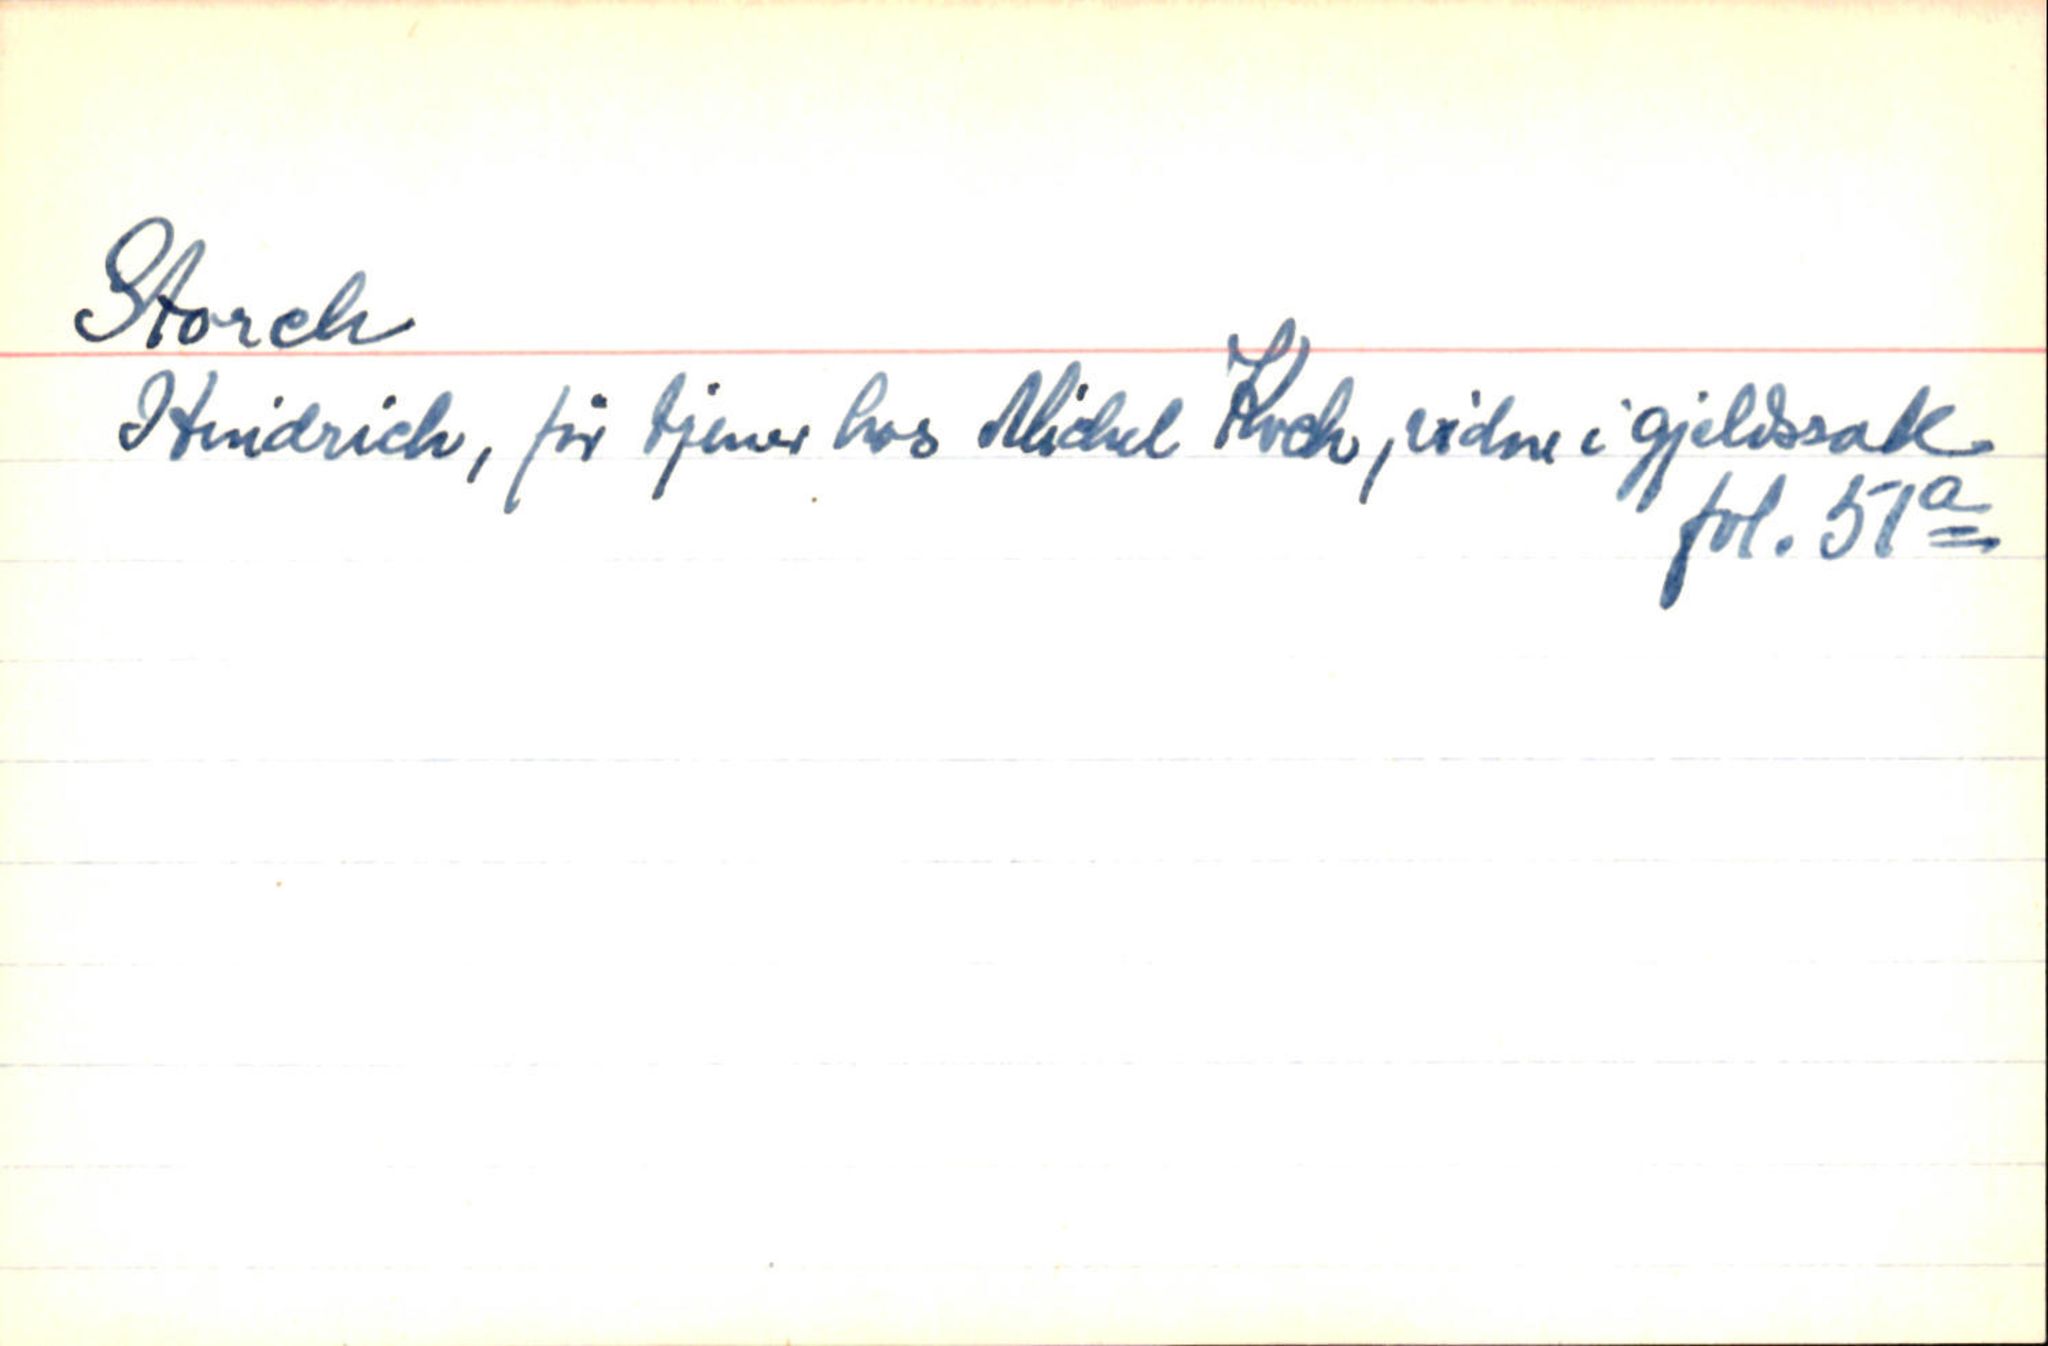 Storch
Hindrich, før tjener hos Michel Koch, vidne i gjeldssak
fol. 51a